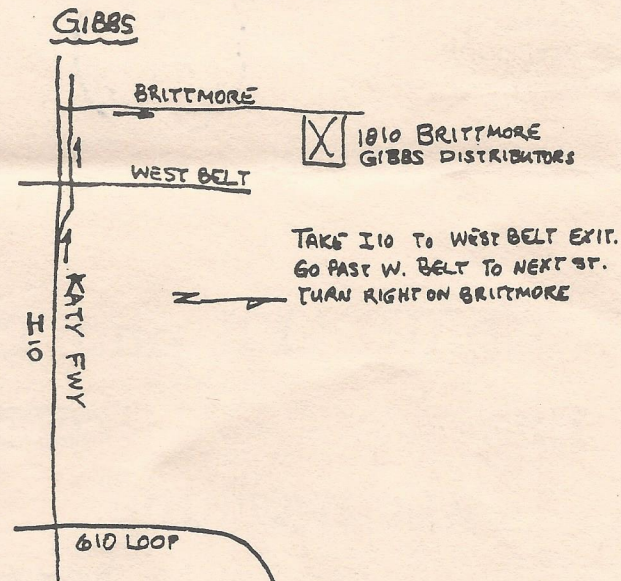 GIBBS
BRITTMORE
1810 BRITTMORE
GIBBS DISTRIBUTORS
WEST BELT
TAKE I10 TO WEST BELT EXIT.
GO PAST W. BELT TO NEXT ST.
TURN RIGHT ON BRITTMORE
N
KATY FWY
I10
610 LOOP